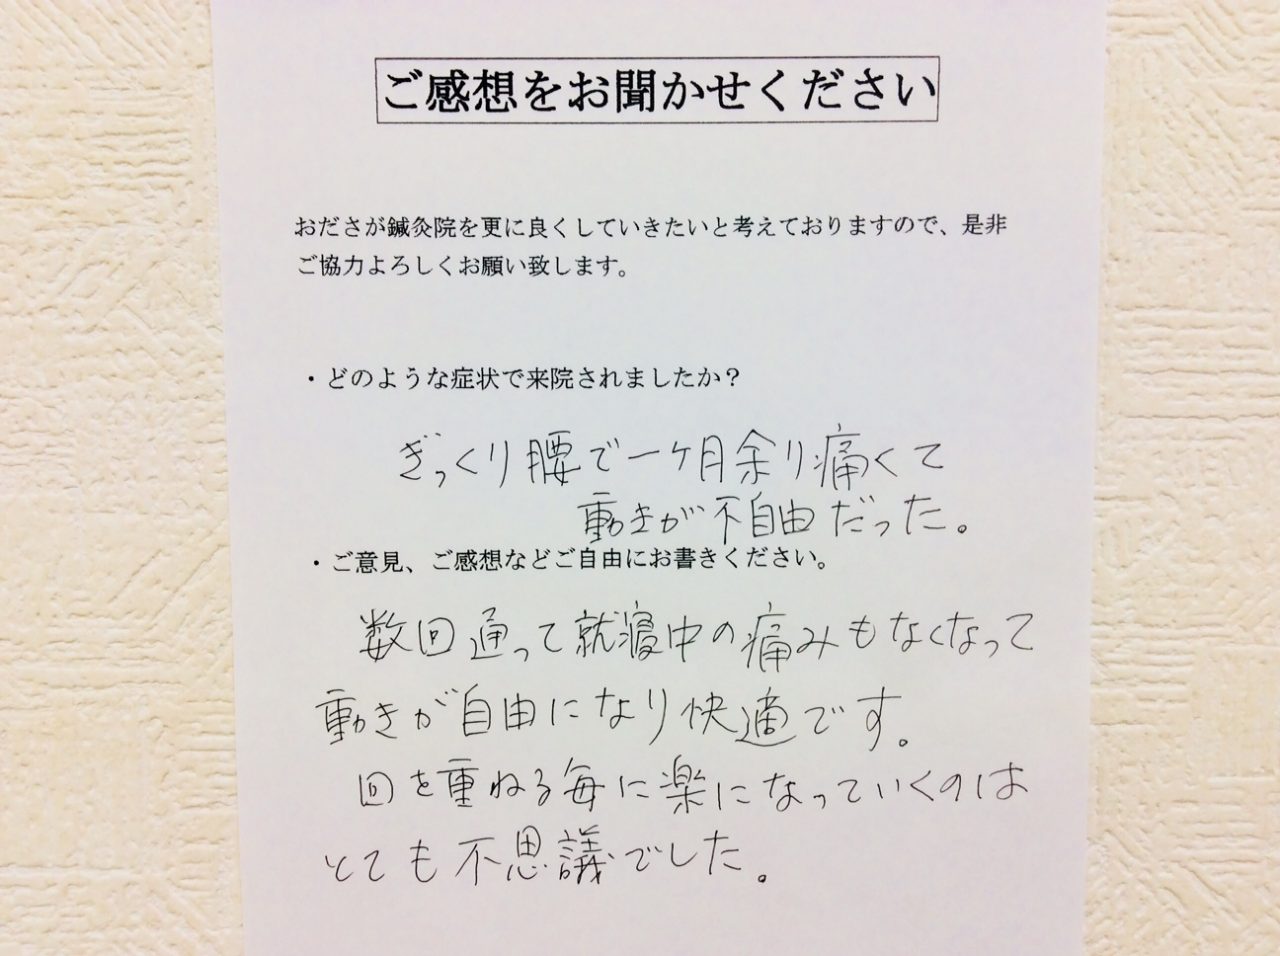 ご感想をお聞かせください
おださが鍼灸院を更に良くしていきたいと考えておりますので、是非
ご協力よろしくお願い致します。
・どのような症状で来院されましたか？
ぎっくり腰で一ヶ月余り痛くて
動きが不自由だった。
・ご意見、ご感想などご自由にお書きください。
数回通って就寝中の痛みもなくなって
動きが自由になり快適です。
回を重ねる毎に楽になっていくのは
とても不思議でした。